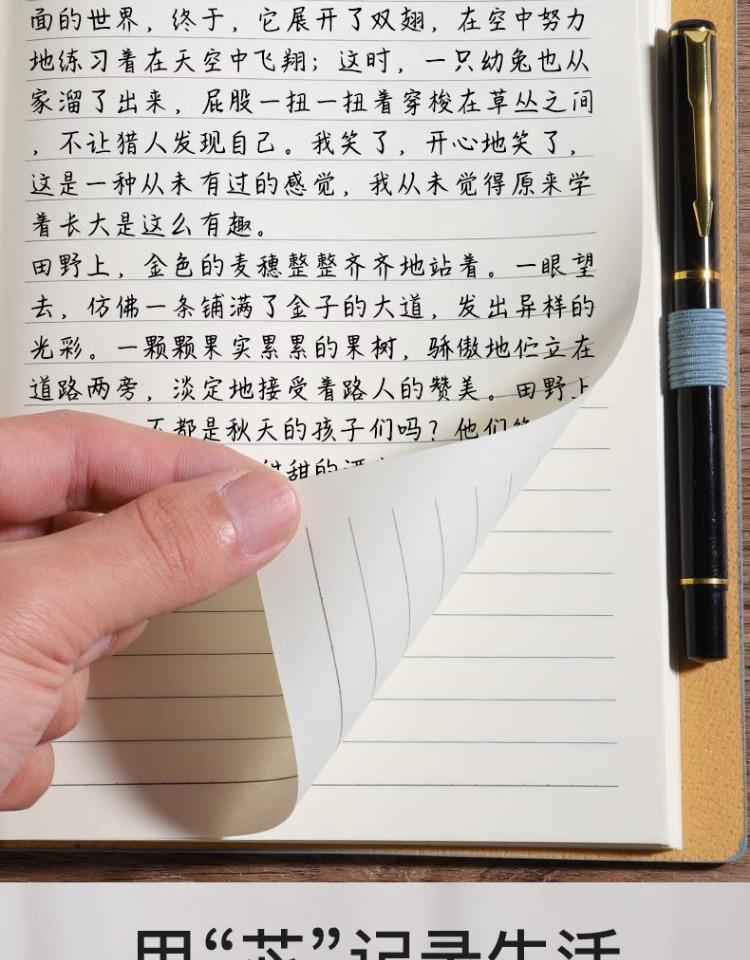 面的世界，终于，它展开了双翅，在空中努力
地练习着在天空中飞翔；这时，一只幼兔也从
家溜了出来，屁股一扭一扭着穿梭在草丛之间
，不让猎人发现自己。我笑了，开心地笑了，
这是一种从未有过的感觉，我从未觉得原来学
着长大是这么有趣。
田野上，金色的麦穗整整齐齐地站着。一眼望
去，仿佛一条铺满了金子的大道，发出异样的
光彩。一颗颗果实累累的果树，骄傲地伫立在
道路两旁，淡定地接受着路人的赞美。田野上
不都是秋天的孩子们吗？他们
甜的
用“芯”记录生活